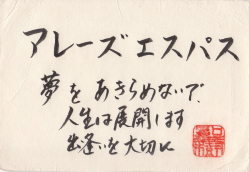 アレーズエスパス
夢をあきらめないで、
人生は展開します
出逢いを大切に